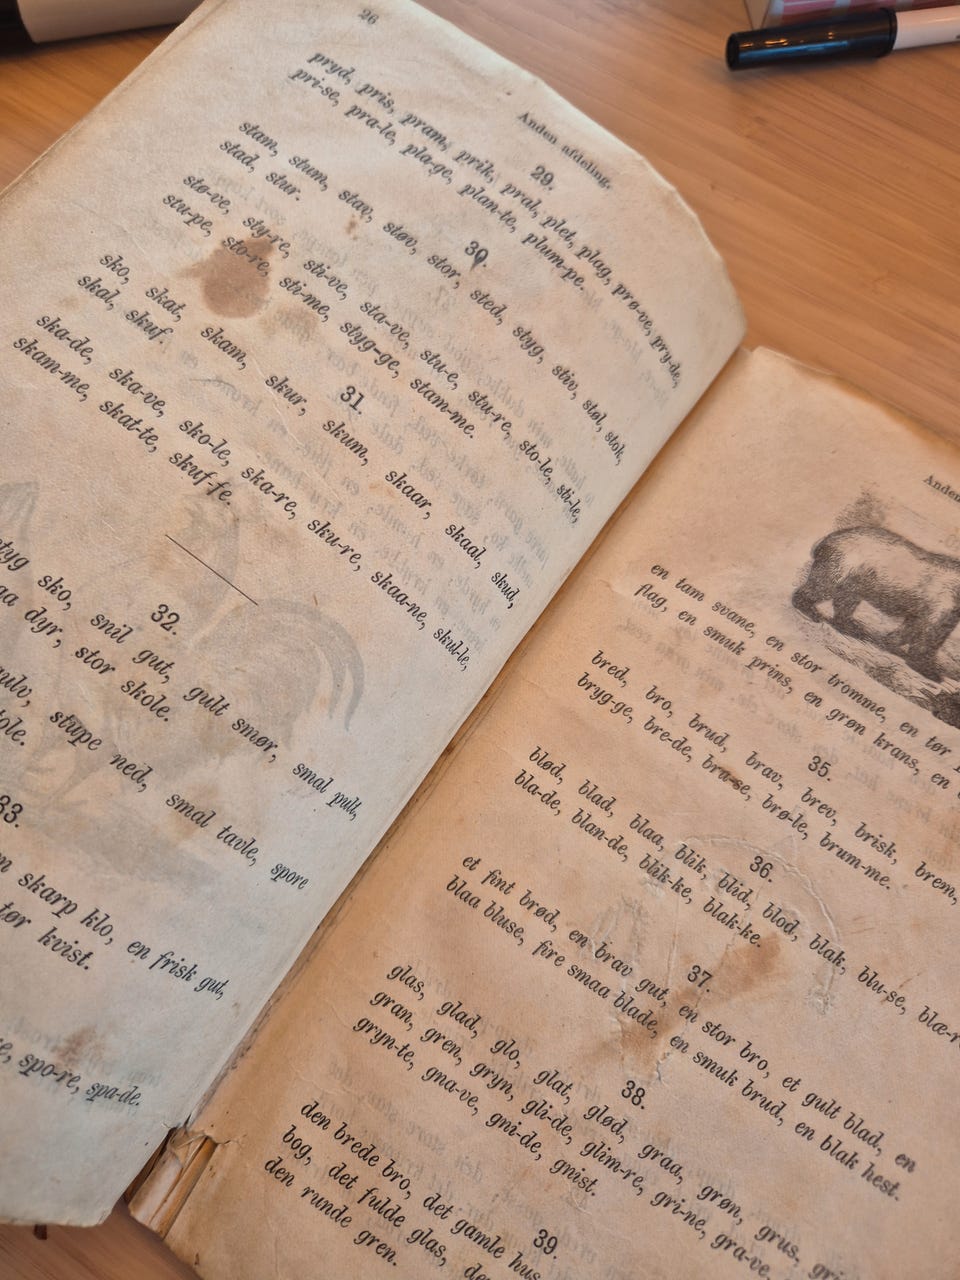 26
Anden afdeling.
pryd, pris, pram, prik, pral, plet, plag, prø-ve, pry-de,
pri-se, pra-le, pla-ge, plan-te, plum-pe.
29.
stam, stum, stav, støv, stor, sted, styg, stiv, støl, stok,
stad, stur.
30.
stø-ve, sty-re, sti-ve, sta-ve, stu-e, stu-re, sto-le, sti-le,
stu-pe, sto-re, sti-me, styg-ge, stam-me.
sko, skat, skam, skur, skum, skaar, skaal, skud,
skal, skuf.
31.
ska-de, ska-ve, sko-le, ska-re, sku-re, skaa-ne, skul-le,
skam-me, skat-te, skuf-fe.
32.
sko, snil gut, gult smør, smal pult,
dyr, stor skole.
stupe ned, smal tavle, spore
33.
skarp klo, en frisk gut,
tør kvist.
spo-re, spa-de.
Anden
en tam svane, en stor tromme, en tør
flag, en smuk prins, en grøn krans, en
35.
bred, bro, brud, brav, brev, brisk, brem,
bryg-ge, bre-de, bra-se, brø-le, brum-me.
36.
blød, blad, blaa, blik, blid, blod, blak, blu-se,
bla-de, blan-de, blik-ke, blak-ke.
37.
et fint brød, en brav gut, en stor bro, et gult blad, en
blaa bluse, fire smaa blade, en smuk brud, en blak hest.
38.
glas, glad, glo, glat, glød, graa, grøn, grus,
gran, gren, gryn, gli-de, glim-re, gri-ne, gra-ve,
gryn-te, gna-ve, gni-de, gnist.
39.
den brede bro, det gamle hus
bog, det fulde glas,
den runde gren.